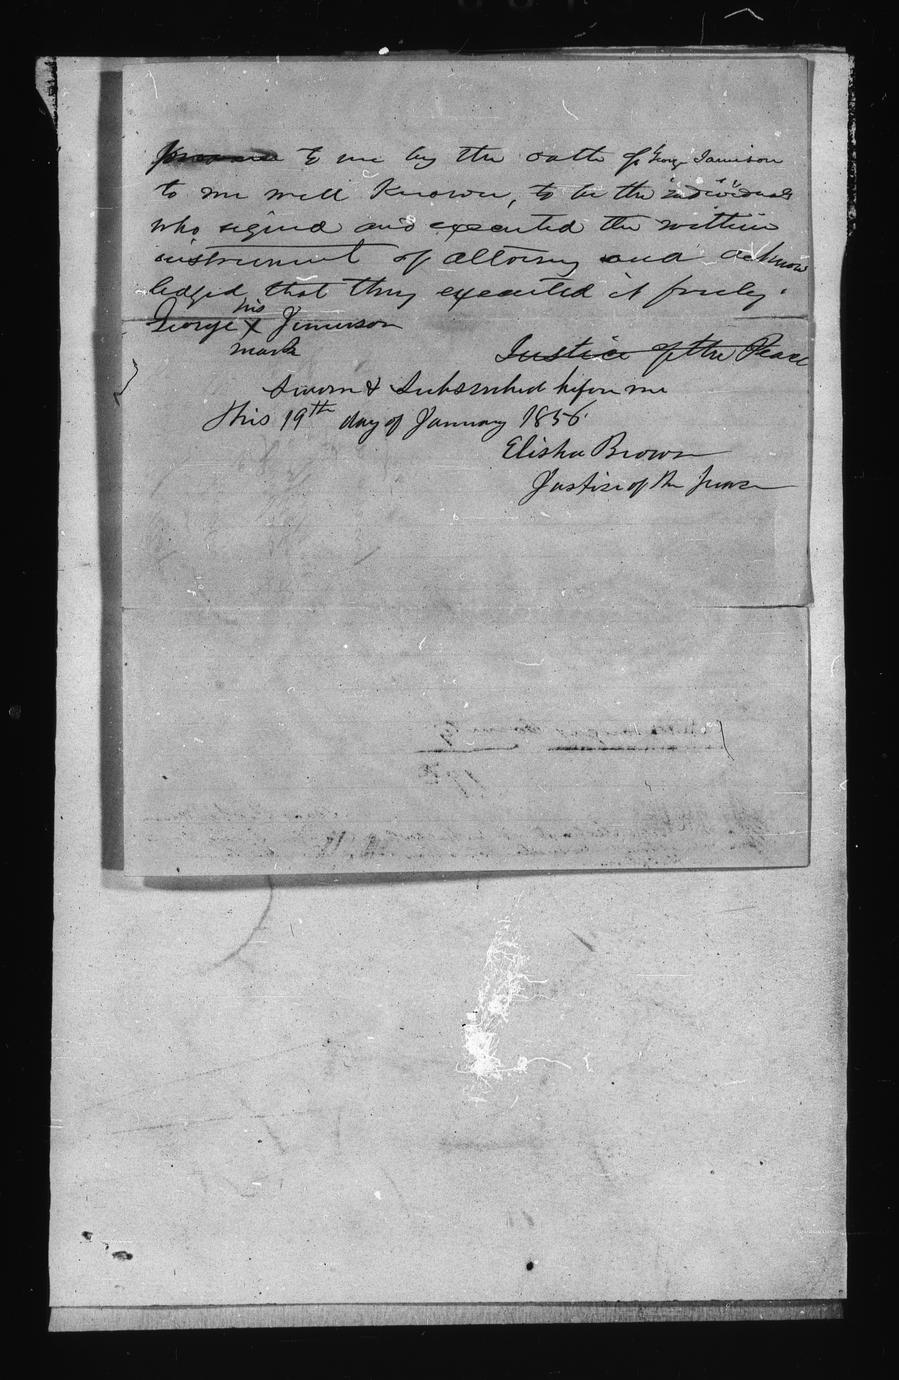 to me by the oath of George Jamison
to me well Known, to be the individuals
who signed and executed the within
instrument of attorney and acknow
ledged that they executed it freely.
his
George X Jimerson
mark
Justice of the Peace
Sworn & Subscribed before me
this 19th day of January 1856
Elisha Brown
Justice of the peace